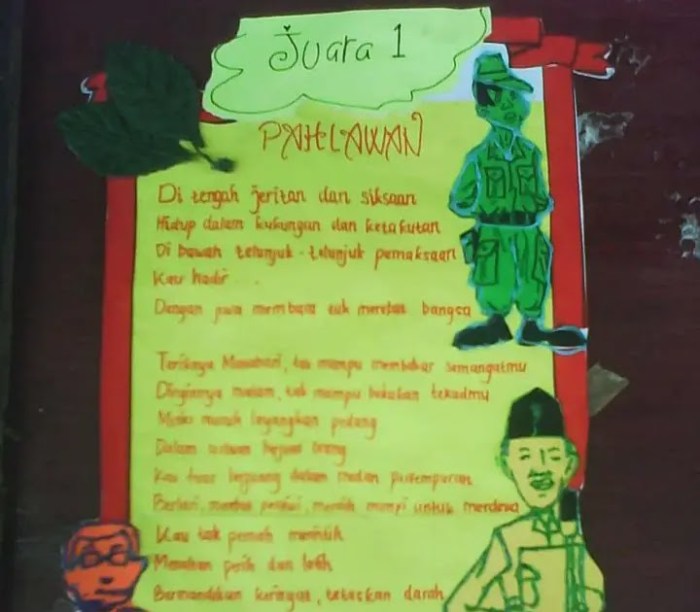 Juara 1
PAHLAWAN
Di tengah jeritan dan siksaan
Hidup dalam kukungan dan ketakutan
Di bawah telunjuk-telunjuk pemaksaan
Kau hadir
Dengan jiwa membara tuk bangsa
Teriknya Matahari, tak mampu membakar semangatmu
Dinginnya malam, tak mampu bekukan tekadmu
musuh layangkan pedang
Dalam
Kau terus berjuang dalam medan pertempuran
Berlari, meraih mimpi untuk merdeka
Kau tak pernah merintih
Menahan perih dan letih
Bermandikan keringat, teteskan darah